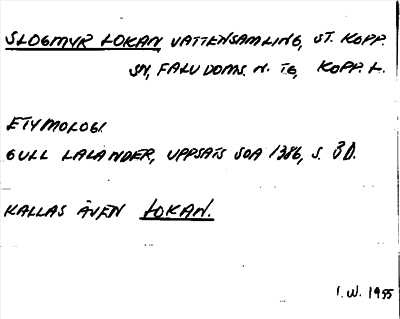 SLOGMYR LOKAN VATTENSAMLING, ST. KOPP.
SN, FALU DOMS. N. TG, KOPP. L.
ETYMOLOGI.
GULL LALANDER, UPPSATS SOA 1386, S. 80.
KALLAS ÄVEN LOKAN.
I. W. 1955